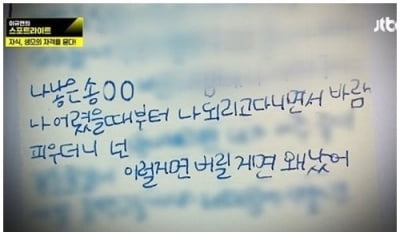 이규연의
스포트라이트
자식, 생모의 자격을 묻다!
jtbc
나낳은송OO
나 어렸을때부터 나 되리고다니면서 바람
피우더니 넌
이럴게면 버릴 게면 왜났어